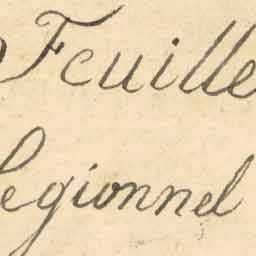 Feuille
legionnel